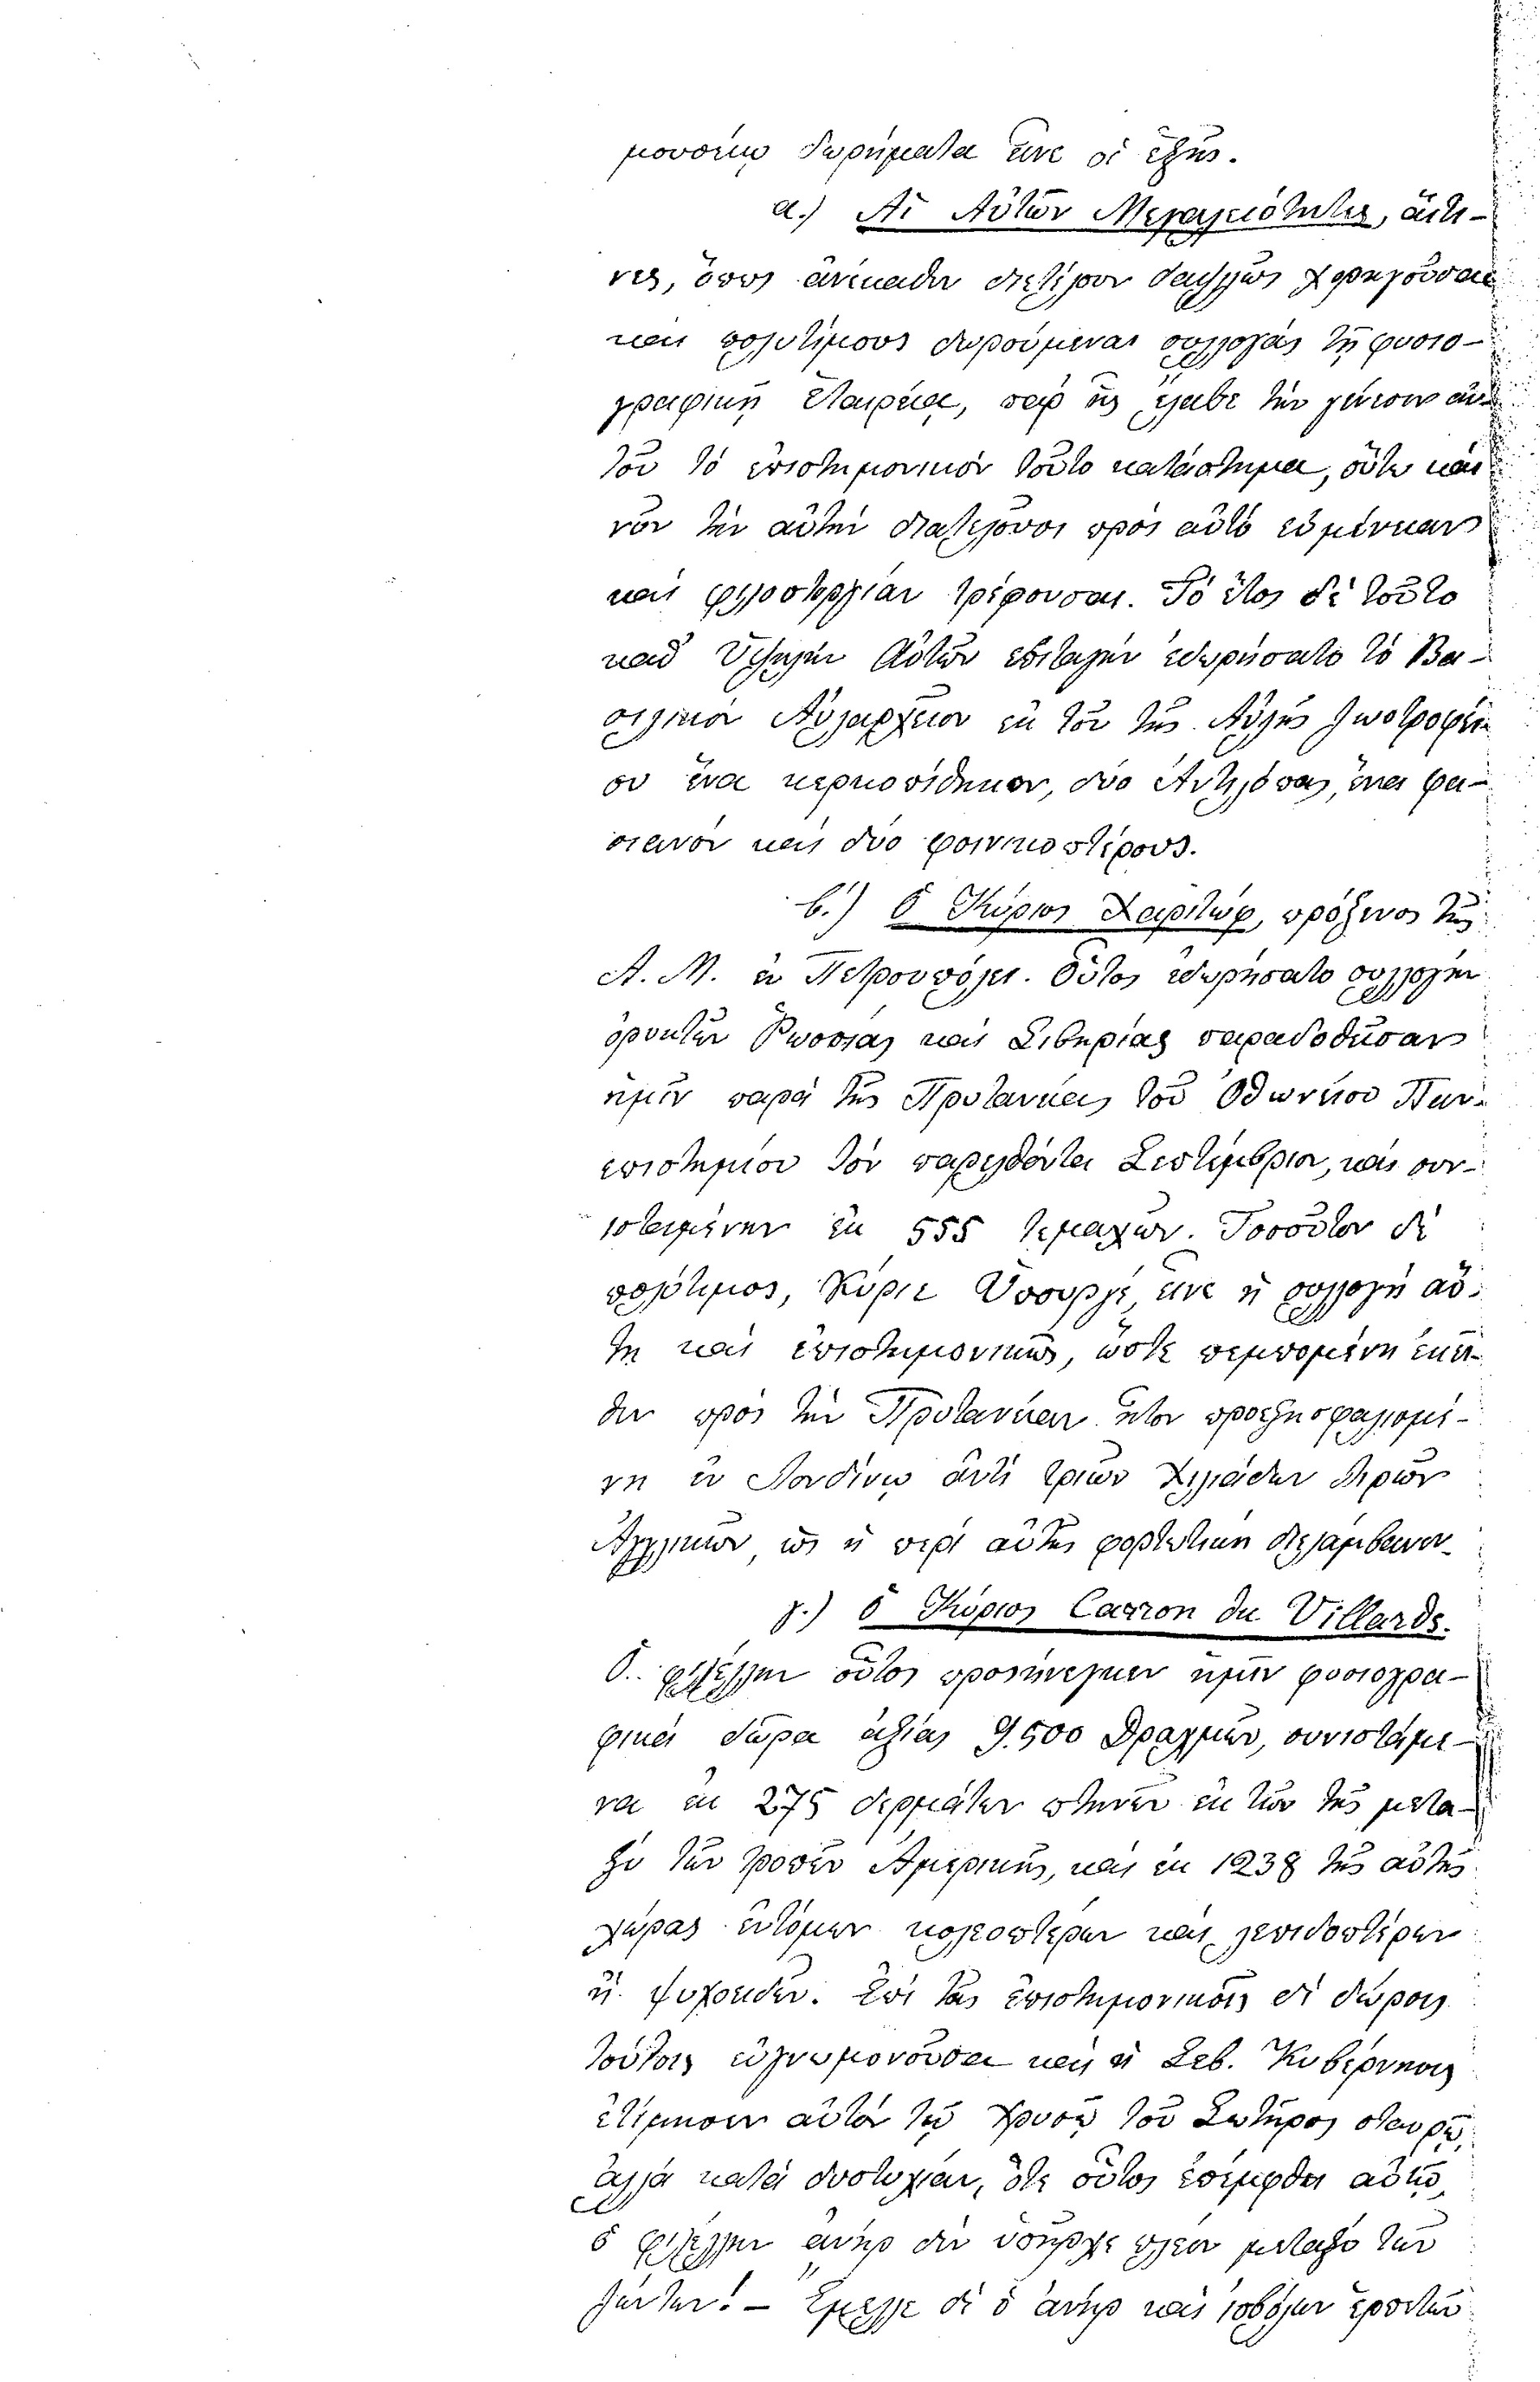 μουσείῳ δωρήματα εἶνε οἱ ἑξῆς.
α.) Αἱ Αὐτῶν Μεγαλειότητες, αἵτι-
νες, ὅπως ἀνέκαθεν διετέλουν δαψιλῶς χορηγοῦσαι
καὶ πολυτίμους δωρούμεναι συλλογὰς τῇ φυσιο-
γραφικῇ ἑταιρείᾳ, παρ' ἧς ἔλαβε τὴν γένεσιν αὑ-
τοῦ τὸ ἐπιστημονικὸν τοῦτο κατάστημα, οὕτω καὶ
νῦν τὴν αὐτὴν διατελοῦσι πρὸς αὐτὸ εὐμένειαν
καὶ φιλοστοργίαν τρέφουσαι. Τὸ ἔτος δὲ τοῦτο
καθ' Ὑψηλὴν Αὐτῶν ἐπιταγὴν ἐδωρήσατο τὸ Βα-
σιλικὸν Αὐλαρχεῖον ἐκ τοῦ τῆς Αὐλῆς ζωοτροφεί-
ου ἕνα κερκοπίθηκον, δύο Ἀντιλόπας, ἕνα φα-
σιανὸν καὶ δύο φοινικοπτέρους.
β.) ὁ Κύριος Χαριτὼφ, πρόξενος τῆς
Α. Μ. ἐν Πετρουπόλει. Οὗτος ἐδωρήσατο συλλογὴν
ὀρνίθων Ῥωσσίας καὶ Σιβηρίας παραδοθεῖσαν
ἡμῖν παρὰ τῆς Πρυτανείας τοῦ Ὀθωνείου Παν-
επιστημίου τὸν παρελθόντα Σεπτέμβριον, καὶ συν-
ισταμένην ἐκ 555 τεμαχίων. Τοσοῦτον δὲ
πολύτιμος, Κύριε Ὑπουργὲ, εἶνε ἡ συλλογὴ αὕ-
τη καὶ ἐπιστημονικῶς, ὥστε πεμπομένη ἐκεῖ-
θεν πρὸς τὴν Πρυτανείαν ἦτον προεξησφαλισμέ-
νη ἐν Λονδίνῳ ἀντὶ τριῶν χιλιάδων λιρῶν
Ἀγγλικῶν, ὡς ἡ περὶ αὐτῆς φορτωτικὴ διελάμβανεν.
γ.) ὁ Κύριος Carron du Villards.
Ὁ φιλέλλην οὗτος προσήνεγκεν ἡμῖν φυσιογρα-
φικὰ δῶρα ἀξίας 9.500 Δραχμῶν, συνιστάμε-
να ἐκ 275 δερμάτων πτηνῶν ἐκ τῶν τῆς μετα-
ξὺ τῶν τροπῶν Ἀμερικῆς, καὶ ἐκ 1238 τῆς αὐτῆς
χώρας ἐντόμων κολεοπτέρων καὶ λεπιδοπτέρων
ἢ ψυχοειδῶν. Ἐπὶ τοῖς ἐπιστημονικοῖς δὲ δώροις
τούτοις εὐγνωμονοῦσα καὶ ἡ Σεβ. Κυβέρνησις
ἐτίμησεν αὐτὸν τῷ χρυσῷ τοῦ Σωτῆρος σταυρῷ,
ἀλλὰ κατὰ δυστυχίαν, ὅτε οὗτος ἐπέμφθη αὐτῷ,
ὁ φιλέλλην ἀνὴρ δὲν ὑπῆρχε πλέον μεταξὺ τῶν
ζώντων! – Ἔμελλε δὲ ὁ ἀνὴρ καὶ ἰοβόλων ἑρπετῶν